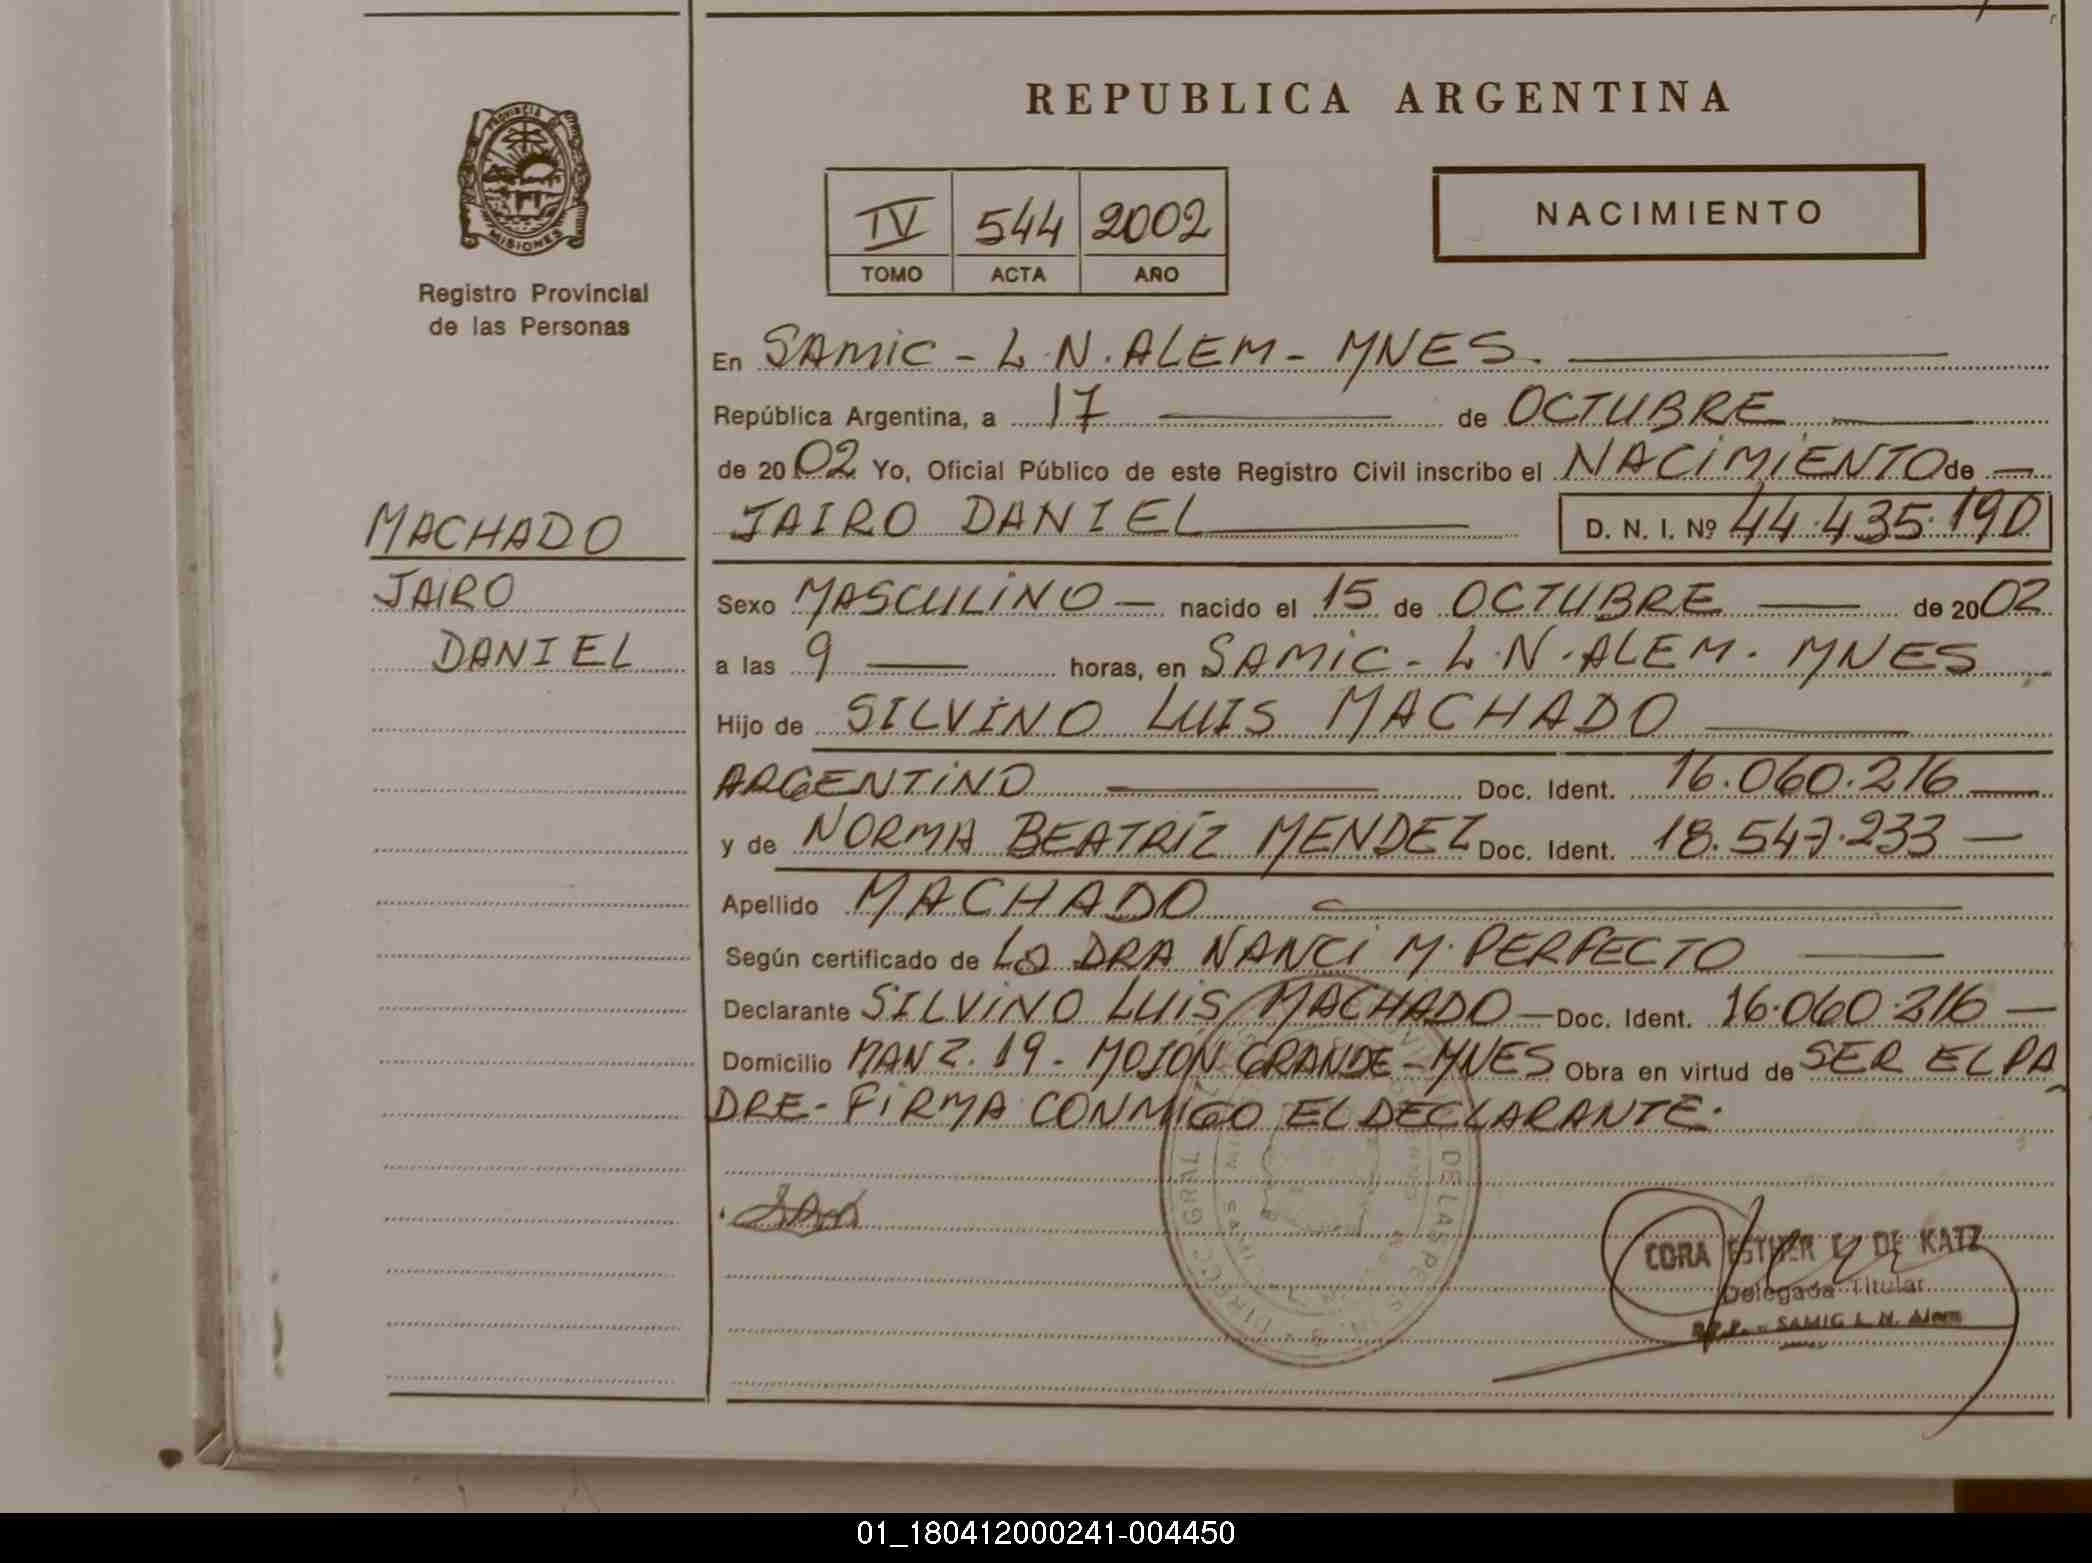 REPUBLICA ARGENTINA
PROVINCIA DE
MISIONES
Registro Provincial
de las Personas
IV 544 2002
TOMO ACTA AÑO
NACIMIENTO
En SAMIC - L.N. ALEM - MNES.
República Argentina, a 17 de OCTUBRE
de 2002 Yo, Oficial Público de este Registro Civil inscribo el NACIMIENTO de
JAIRO DANIEL D. N. I. Nº 44.435.190
MACHADO
JAIRO
DANIEL
Sexo MASCULINO nacido el 15 de OCTUBRE de 2002
a las 9 horas, en SAMIC - L.N. ALEM. MNES
Hijo de SILVINO LUIS MACHADO
ARGENTINO Doc. Ident. 16.060.216
y de NORMA BEATRIZ MENDEZ Doc. Ident. 18.547.233
Apellido MACHADO
Según certificado de La DRA NANCI M. PERFECTO
Declarante SILVINO LUIS MACHADO Doc. Ident. 16.060.216
Domicilio MANZ. 19 - MOJON GRANDE - MNES Obra en virtud de SER EL PA
DRE - FIRMA CONMIGO EL DECLARANTE.
CORA ESTHER DE KATZ
Delegada Titular
R.P.P. - SAMIC L. N. Alem
01_180412000241-004450